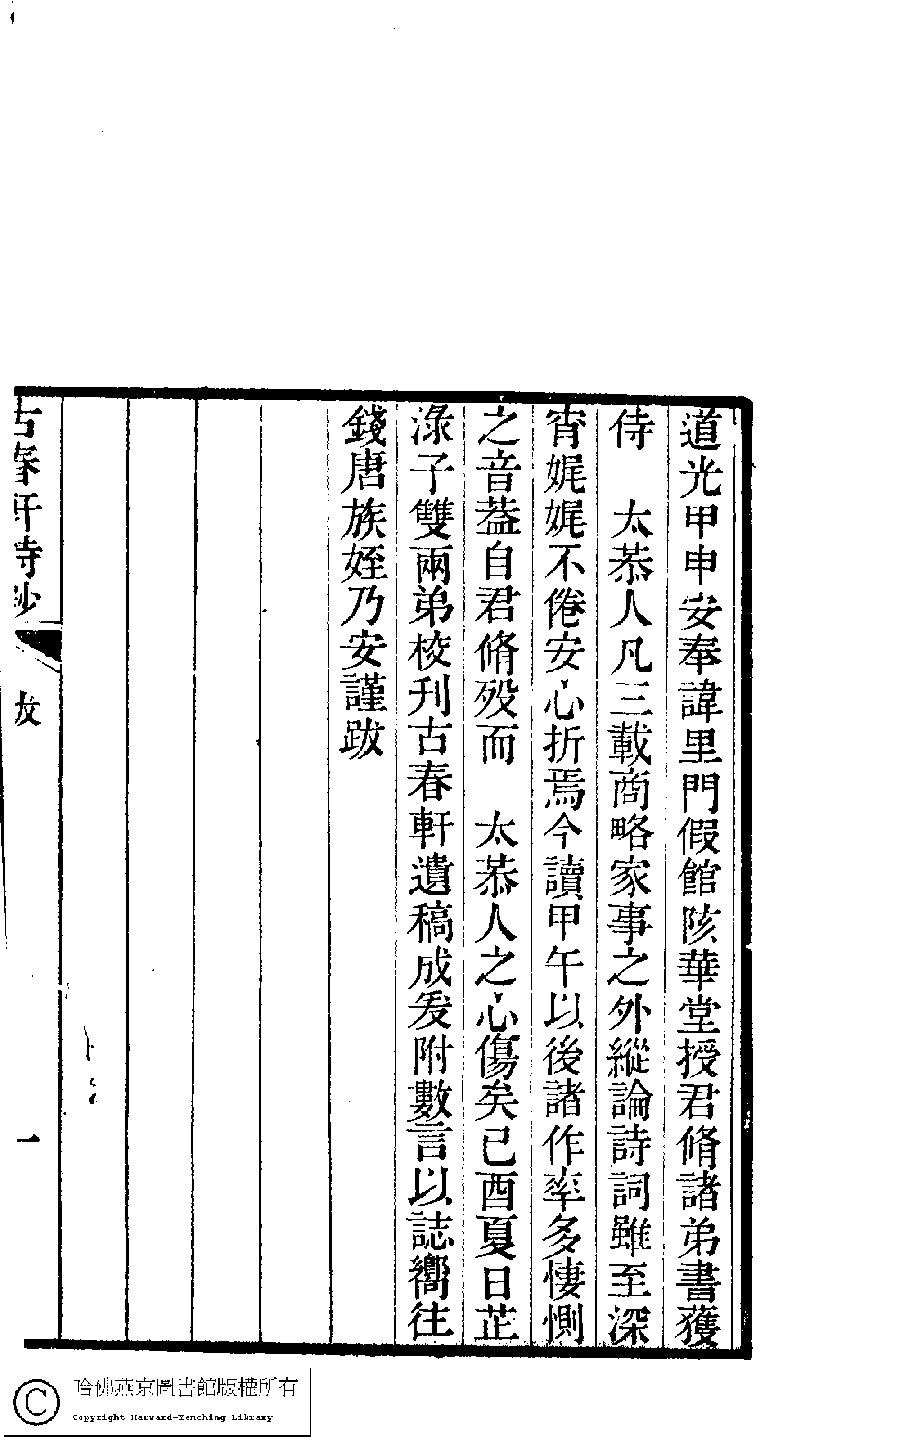 道光甲申安奉諱里門假館陔華堂授君脩諸弟書獲
侍　太恭人凡三載商略家事之外縱論詩詞雖至深
宵娓娓不倦安心折焉今讀甲午以後諸作率多悽惻
之音葢自君脩歿而　太恭人之心傷矣己酉夏日芷
淥子雙兩弟校刊古春軒遺稿成爰附數言以誌嚮往
錢唐族姪乃安謹跋
古春軒詩鈔
跋
一
哈佛燕京圖書館版權所有
Copyright Harvard-Yenching Library